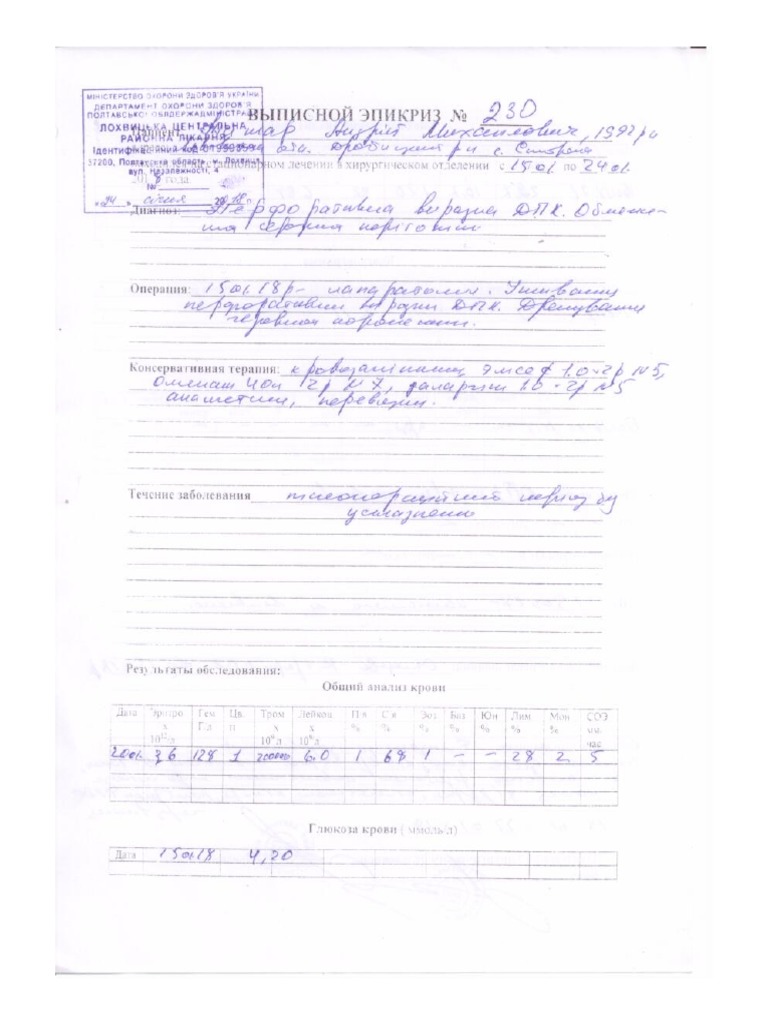 МІНІСТЕРСТВО ОХОРОНИ ЗДОРОВ'Я УКРАЇНИ
ДЕПАРТАМЕНТ ОХОРОНИ ЗДОРОВ'Я
ПОЛТАВСЬКОЇ ОБЛДЕРЖАДМІНІСТРАЦІЇ
ЛОХВИЦЬКА ЦЕНТРАЛЬНА
РАЙОННА ЛІКАРНЯ
Ідентифікаційний код 01999359
37200, Полтавська область, м. Лохвиця
вул. Незалежності, 4
№
«24» січня 2018
ВЫПИСНОЙ ЭПИКРИЗ № 230
Андрій Михайлович, 1992 рн
стационарном лечении в хирургическом отделении с 15.01 по 24.01
года
Диагноз: Перфоративна виразка ДПК. Обмеже-
на серозна перітоніт
Операция: 15.01.18р- лапаратомія. Ушивання
перфоративної виразки ДПК. Дренування
черевної порожнини.
Консервативная терапия: кровозамінники, Эмсеф 1.0 2р №5,
Оменаш 40 2р №7, 1.0 2р №5
аналгетики, перевязки.
Течение заболевания післяопераційний період б/у
ускладнень
Результаты обследования:
Общий анализ крови
Дата Эритро х 10¹²/л Гем Г/л Цв. п Тром х 10⁹/л Лейкоц х 10⁹/л П/я % С/я % Эоз % Баз % Юн % Лим % Мон % СОЭ мм. час
20.01 3,6 128 1 200000 6.0 1 68 1 - - 28 2 5
Глюкоза крови ( ммоль/л)
Дата 15.01.18 4,20